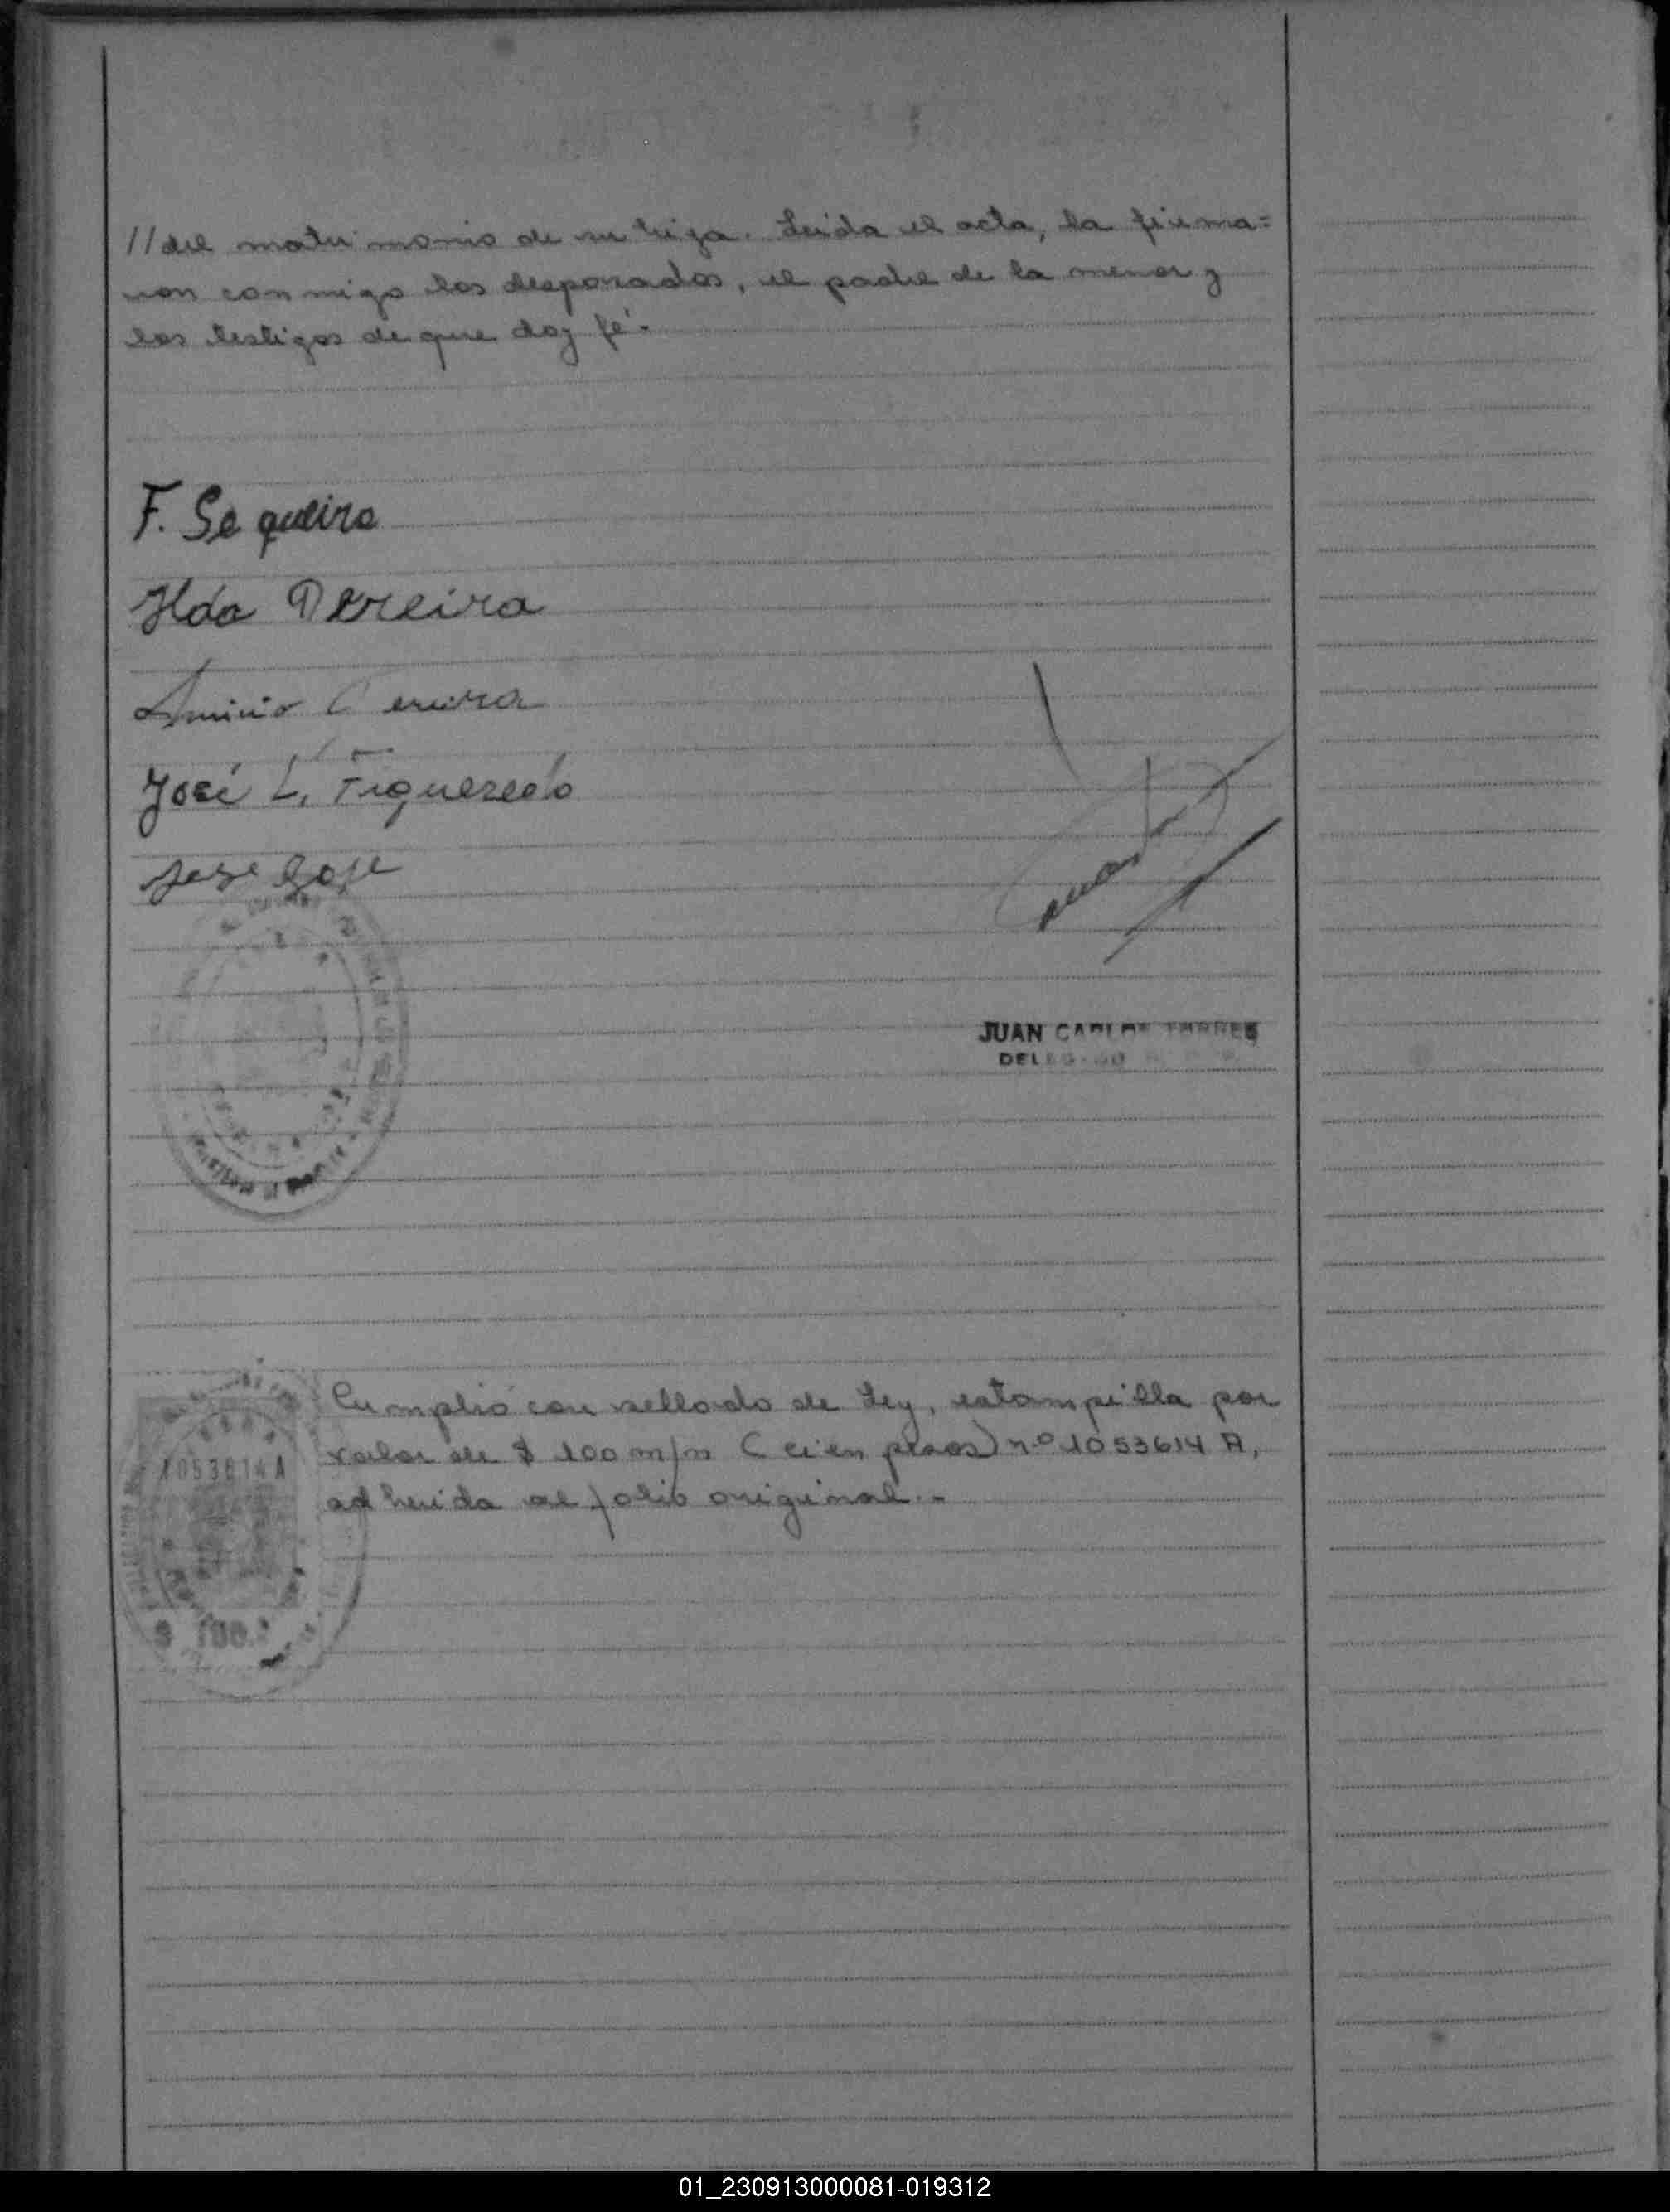 //del matrimonio de su hija. Leida el acta, la firma=
ron conmigo los desposados, el padre de la menor y
los testigos de que doy fé.-
F. Sequeira
Ilda Pereira
Pereira
José L. Figueredo
Jose
JUAN CARLOS TORRES
DELEGADO
Cumplió con sellado de Ley, estampilla por
valor de $ 100 m/n (cien pesos) n.º 1053614 A,
adherida al folio original.-
1053614 A
$ 100.
01_230913000081-019312